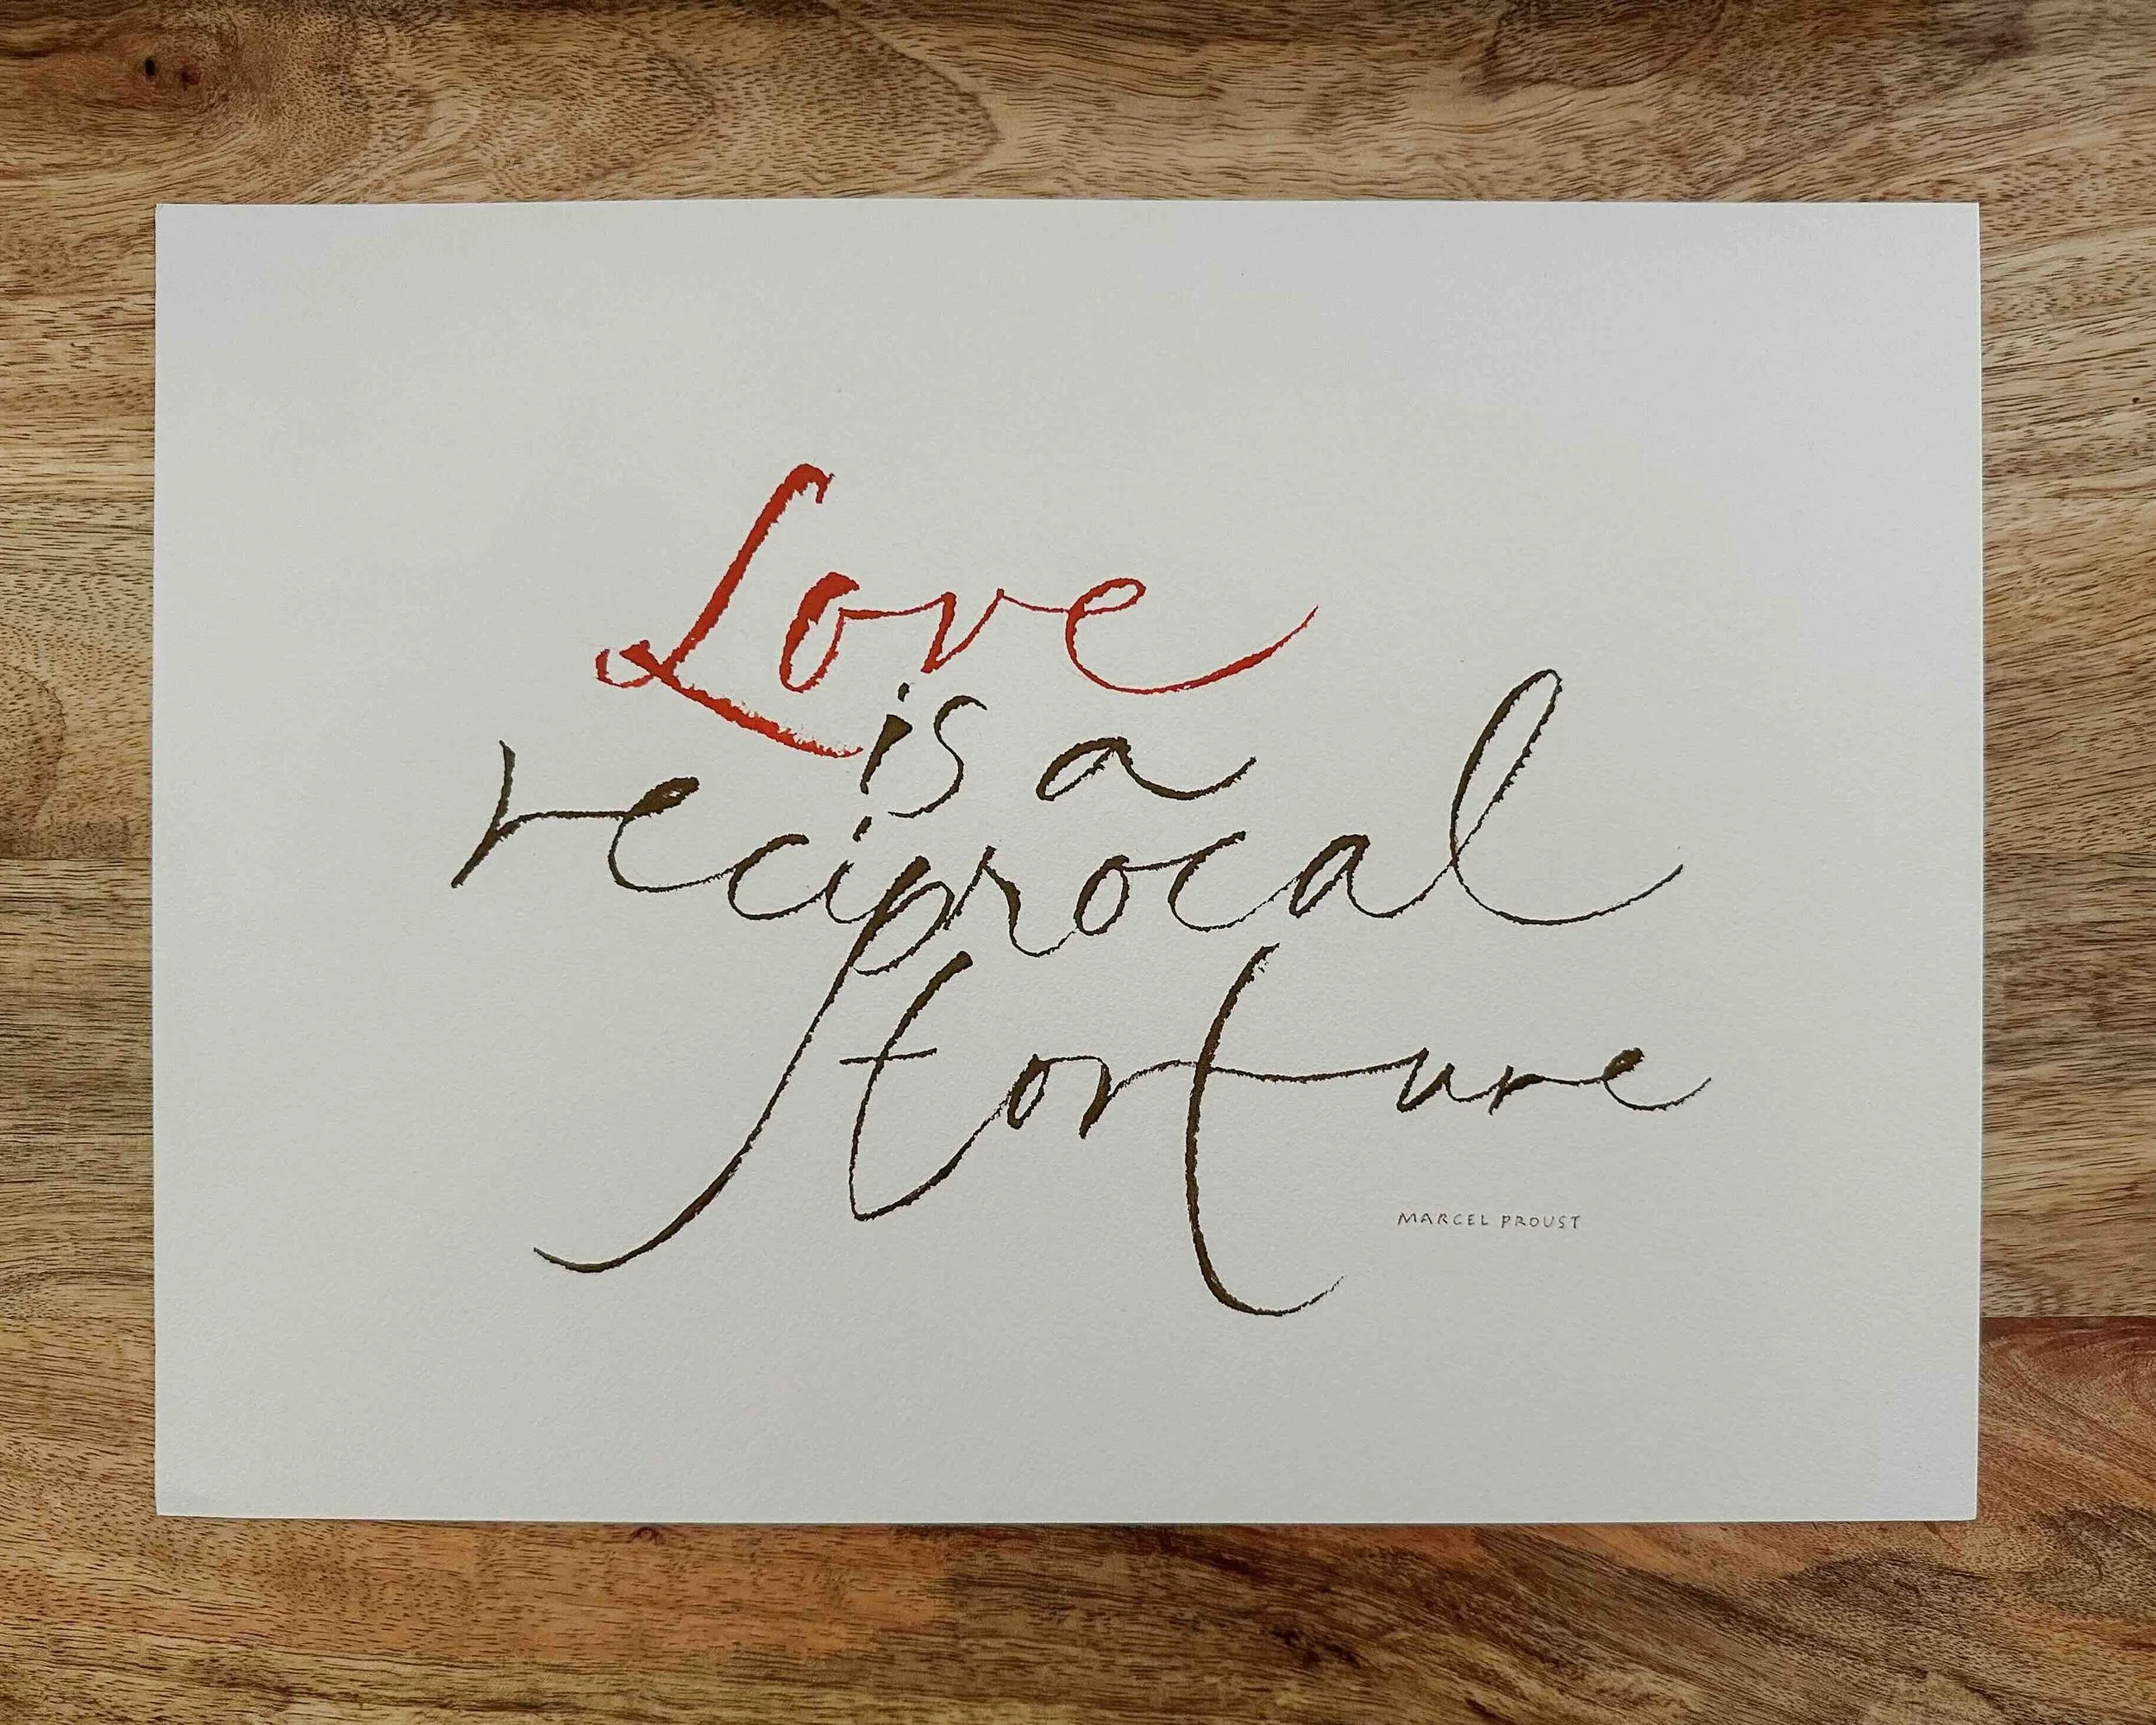 Love
is a
reciprocal
torture
MARCEL PROUST